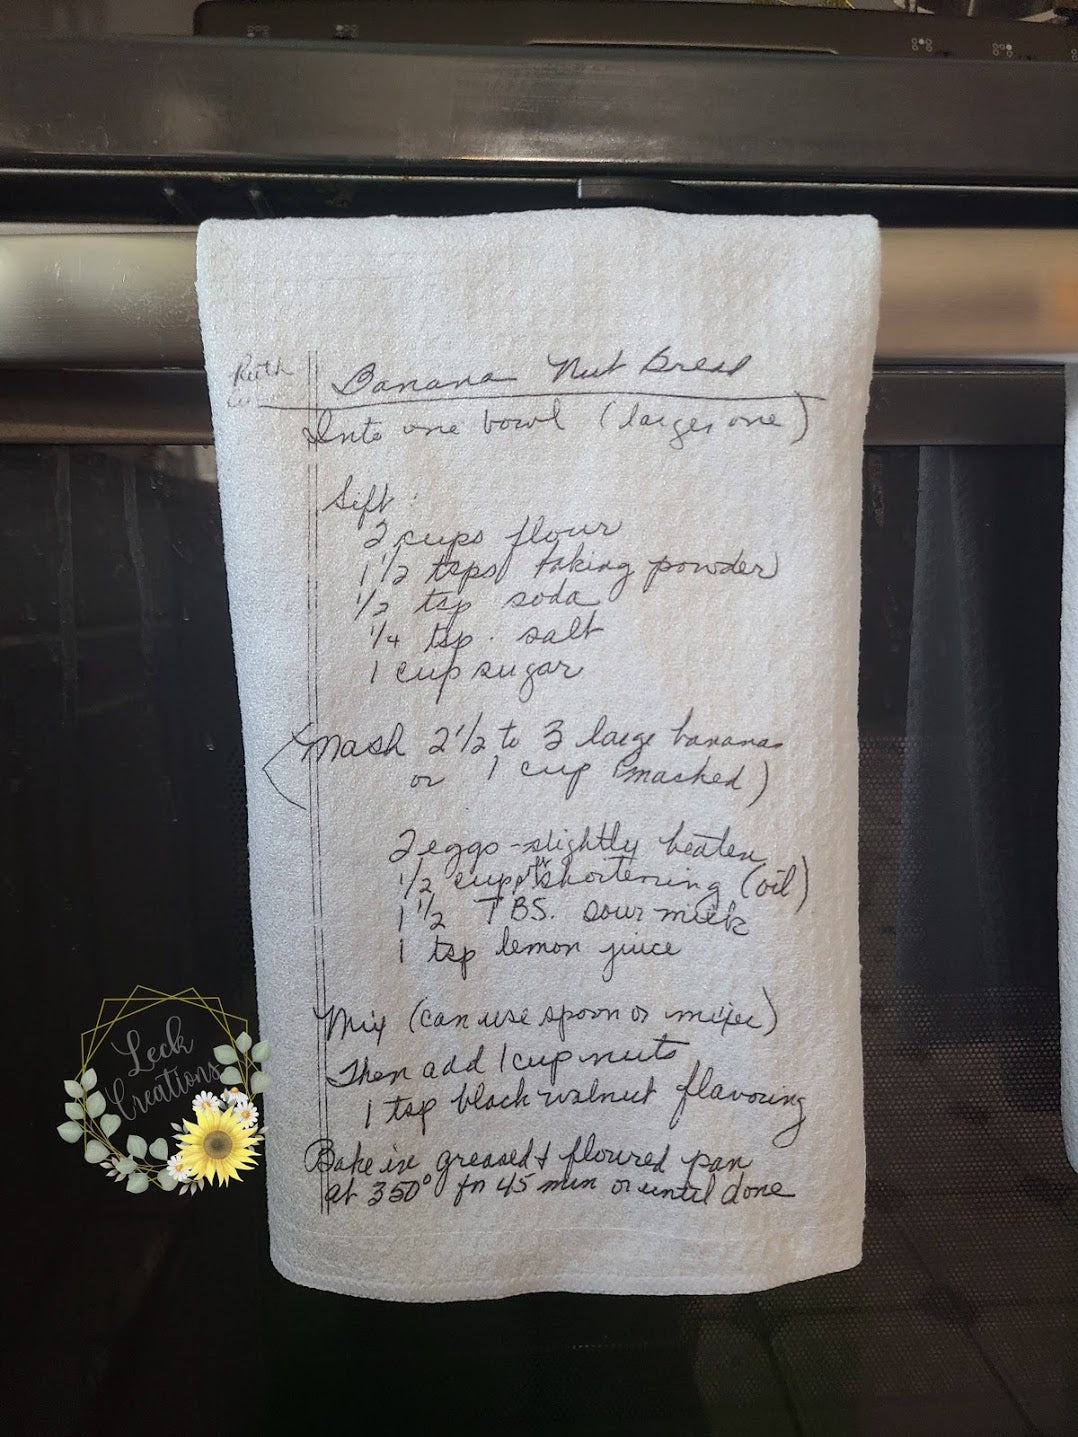 Ruth
Banana Nut Bread
Into one bowl (larger one)
Sift:
2 cups flour
1 1/2 tsps baking powder
1/2 tsp soda
1/4 tsp. salt
1 cup sugar
Mash 2 1/2 to 3 large bananas
or 1 cup (mashed)
2 eggs - slightly beaten
1/2 cup shortening (oil)
1 1/2 TBS. sour milk
1 tsp lemon juice
Mix (can use spoon or mixer)
Then add 1 cup nuts
1 tsp black walnut flavouring
Bake in greased & floured pan
at 350° for 45 min or until done
Leck
Creations